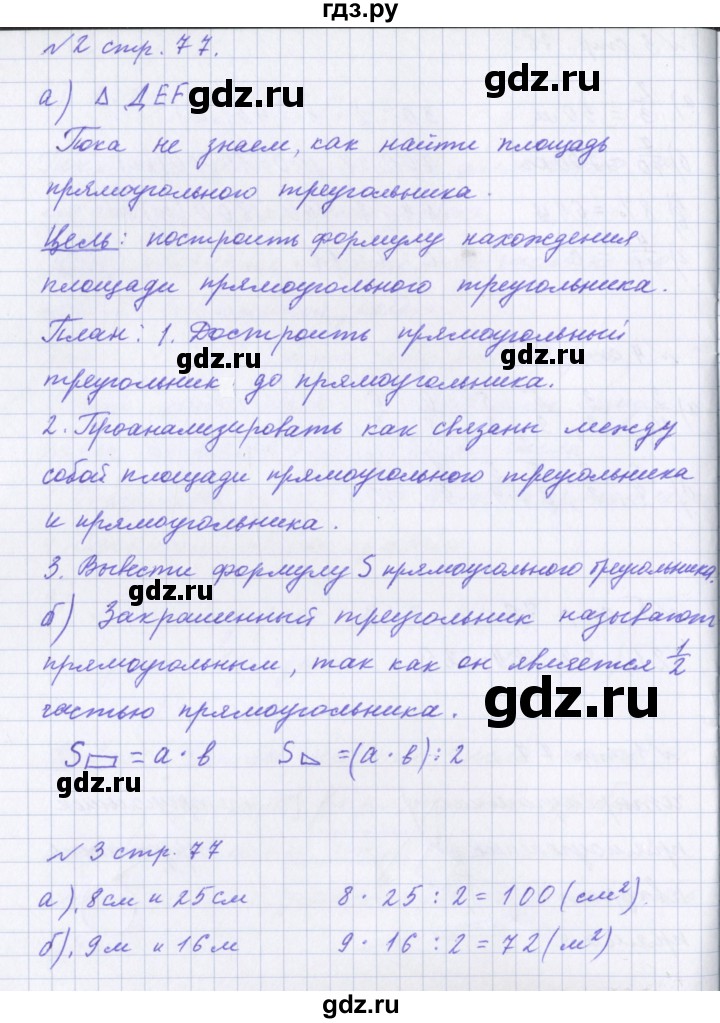 гдз.ру
№2 стр. 77.
а) Δ ДЕF
gdz.ru
gdz.ru
Пока не знаем, как найти площадь
прямоугольного треугольника.
Цель: построить формулу нахождения
gdz.ru
площади прямоугольного треугольника.
План: 1. Достроить прямоугольный
gdz.ru
gdz.ru
треугольник до прямоугольника.
2. Проанализировать как связаны между
собой площади прямоугольного треугольника
и прямоугольника.
3. Вывести формулу S прямоугольного треугольника.
gdz.ru
б) Закрашенный треугольник называют
прямоугольным, так как он является 1/2
gdz.ru
частью прямоугольника.
S▭ = а · в S◺ = (а · в) : 2
gdz.ru
№3 стр. 77
а) 8см и 25см 8 · 25 : 2 = 100 (см²).
gdz.ru
gdz.ru
б) 9м и 16м 9 · 16 : 2 = 72 (м²)
gdz.ru